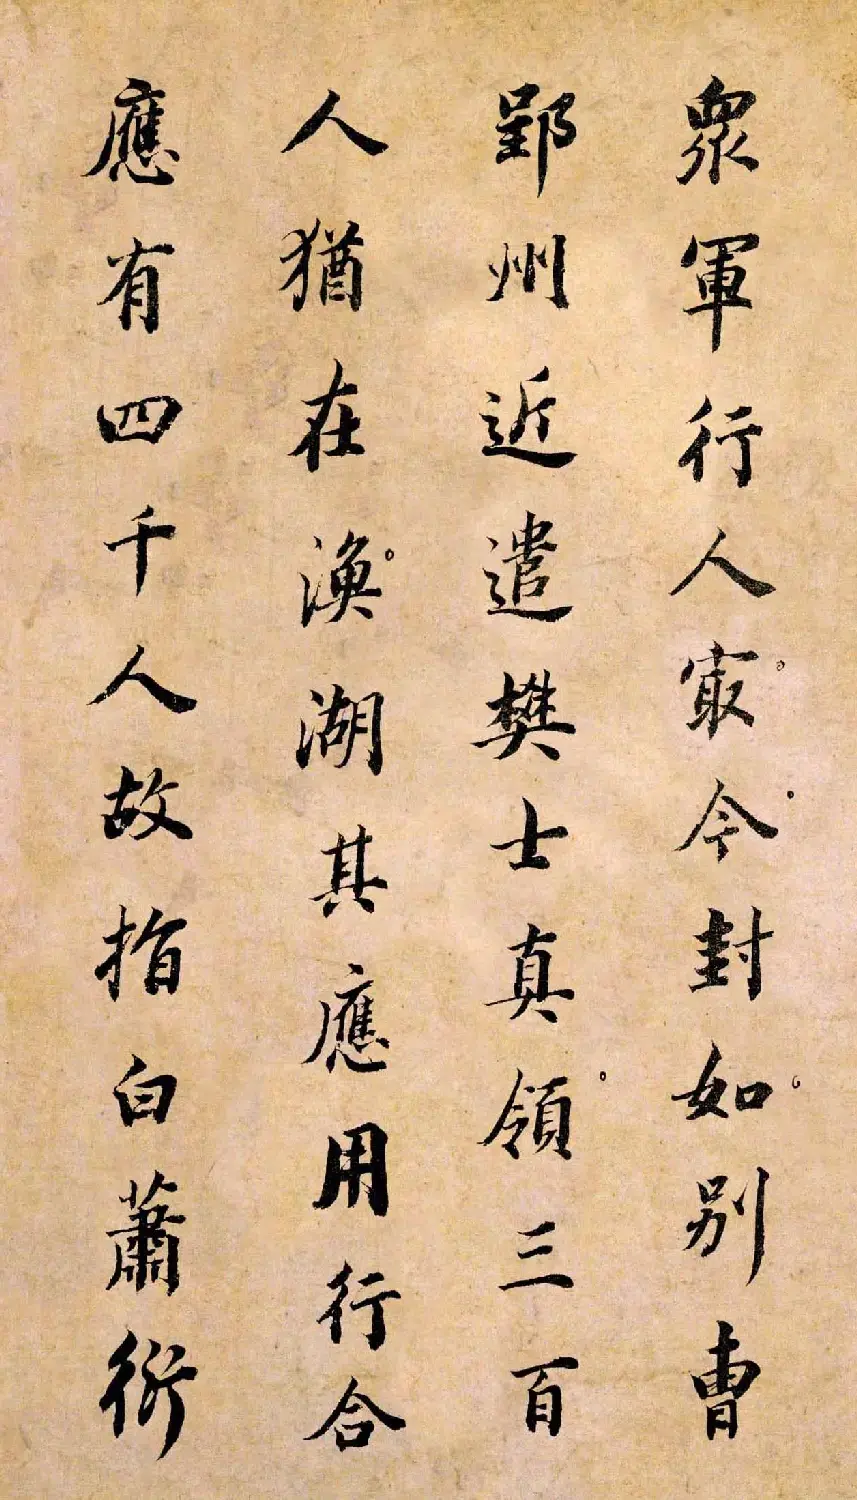 衆軍行人㝡今封如别曹
郢州近遣樊士真領三百
人猶在漁湖其應用行合
應有四千人故指白蕭衍